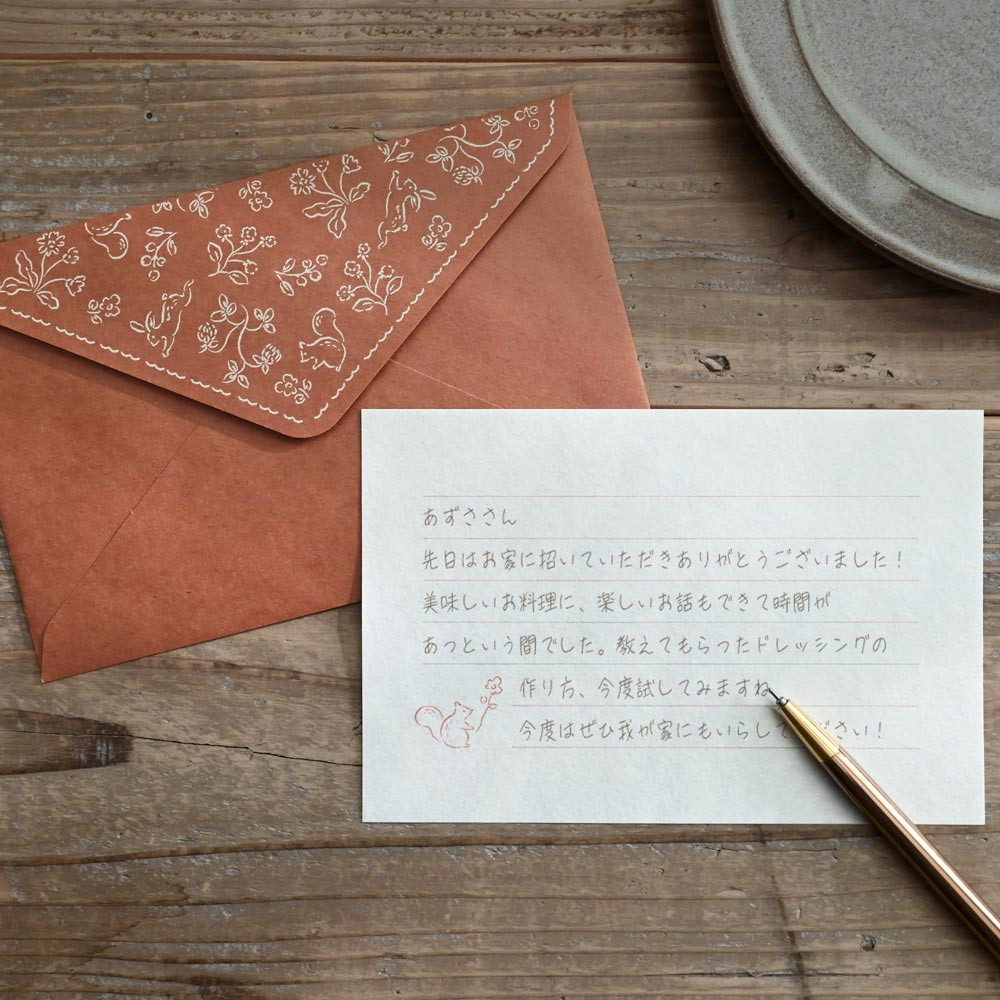 あずささん
先日はお家に招いていただきありがとうございました！
美味しいお料理に、楽しいお話もできて時間が
あっという間でした。教えてもらったドレッシングの
作り方、今度試してみますね
今度はぜひ我が家にもいらして ださい！